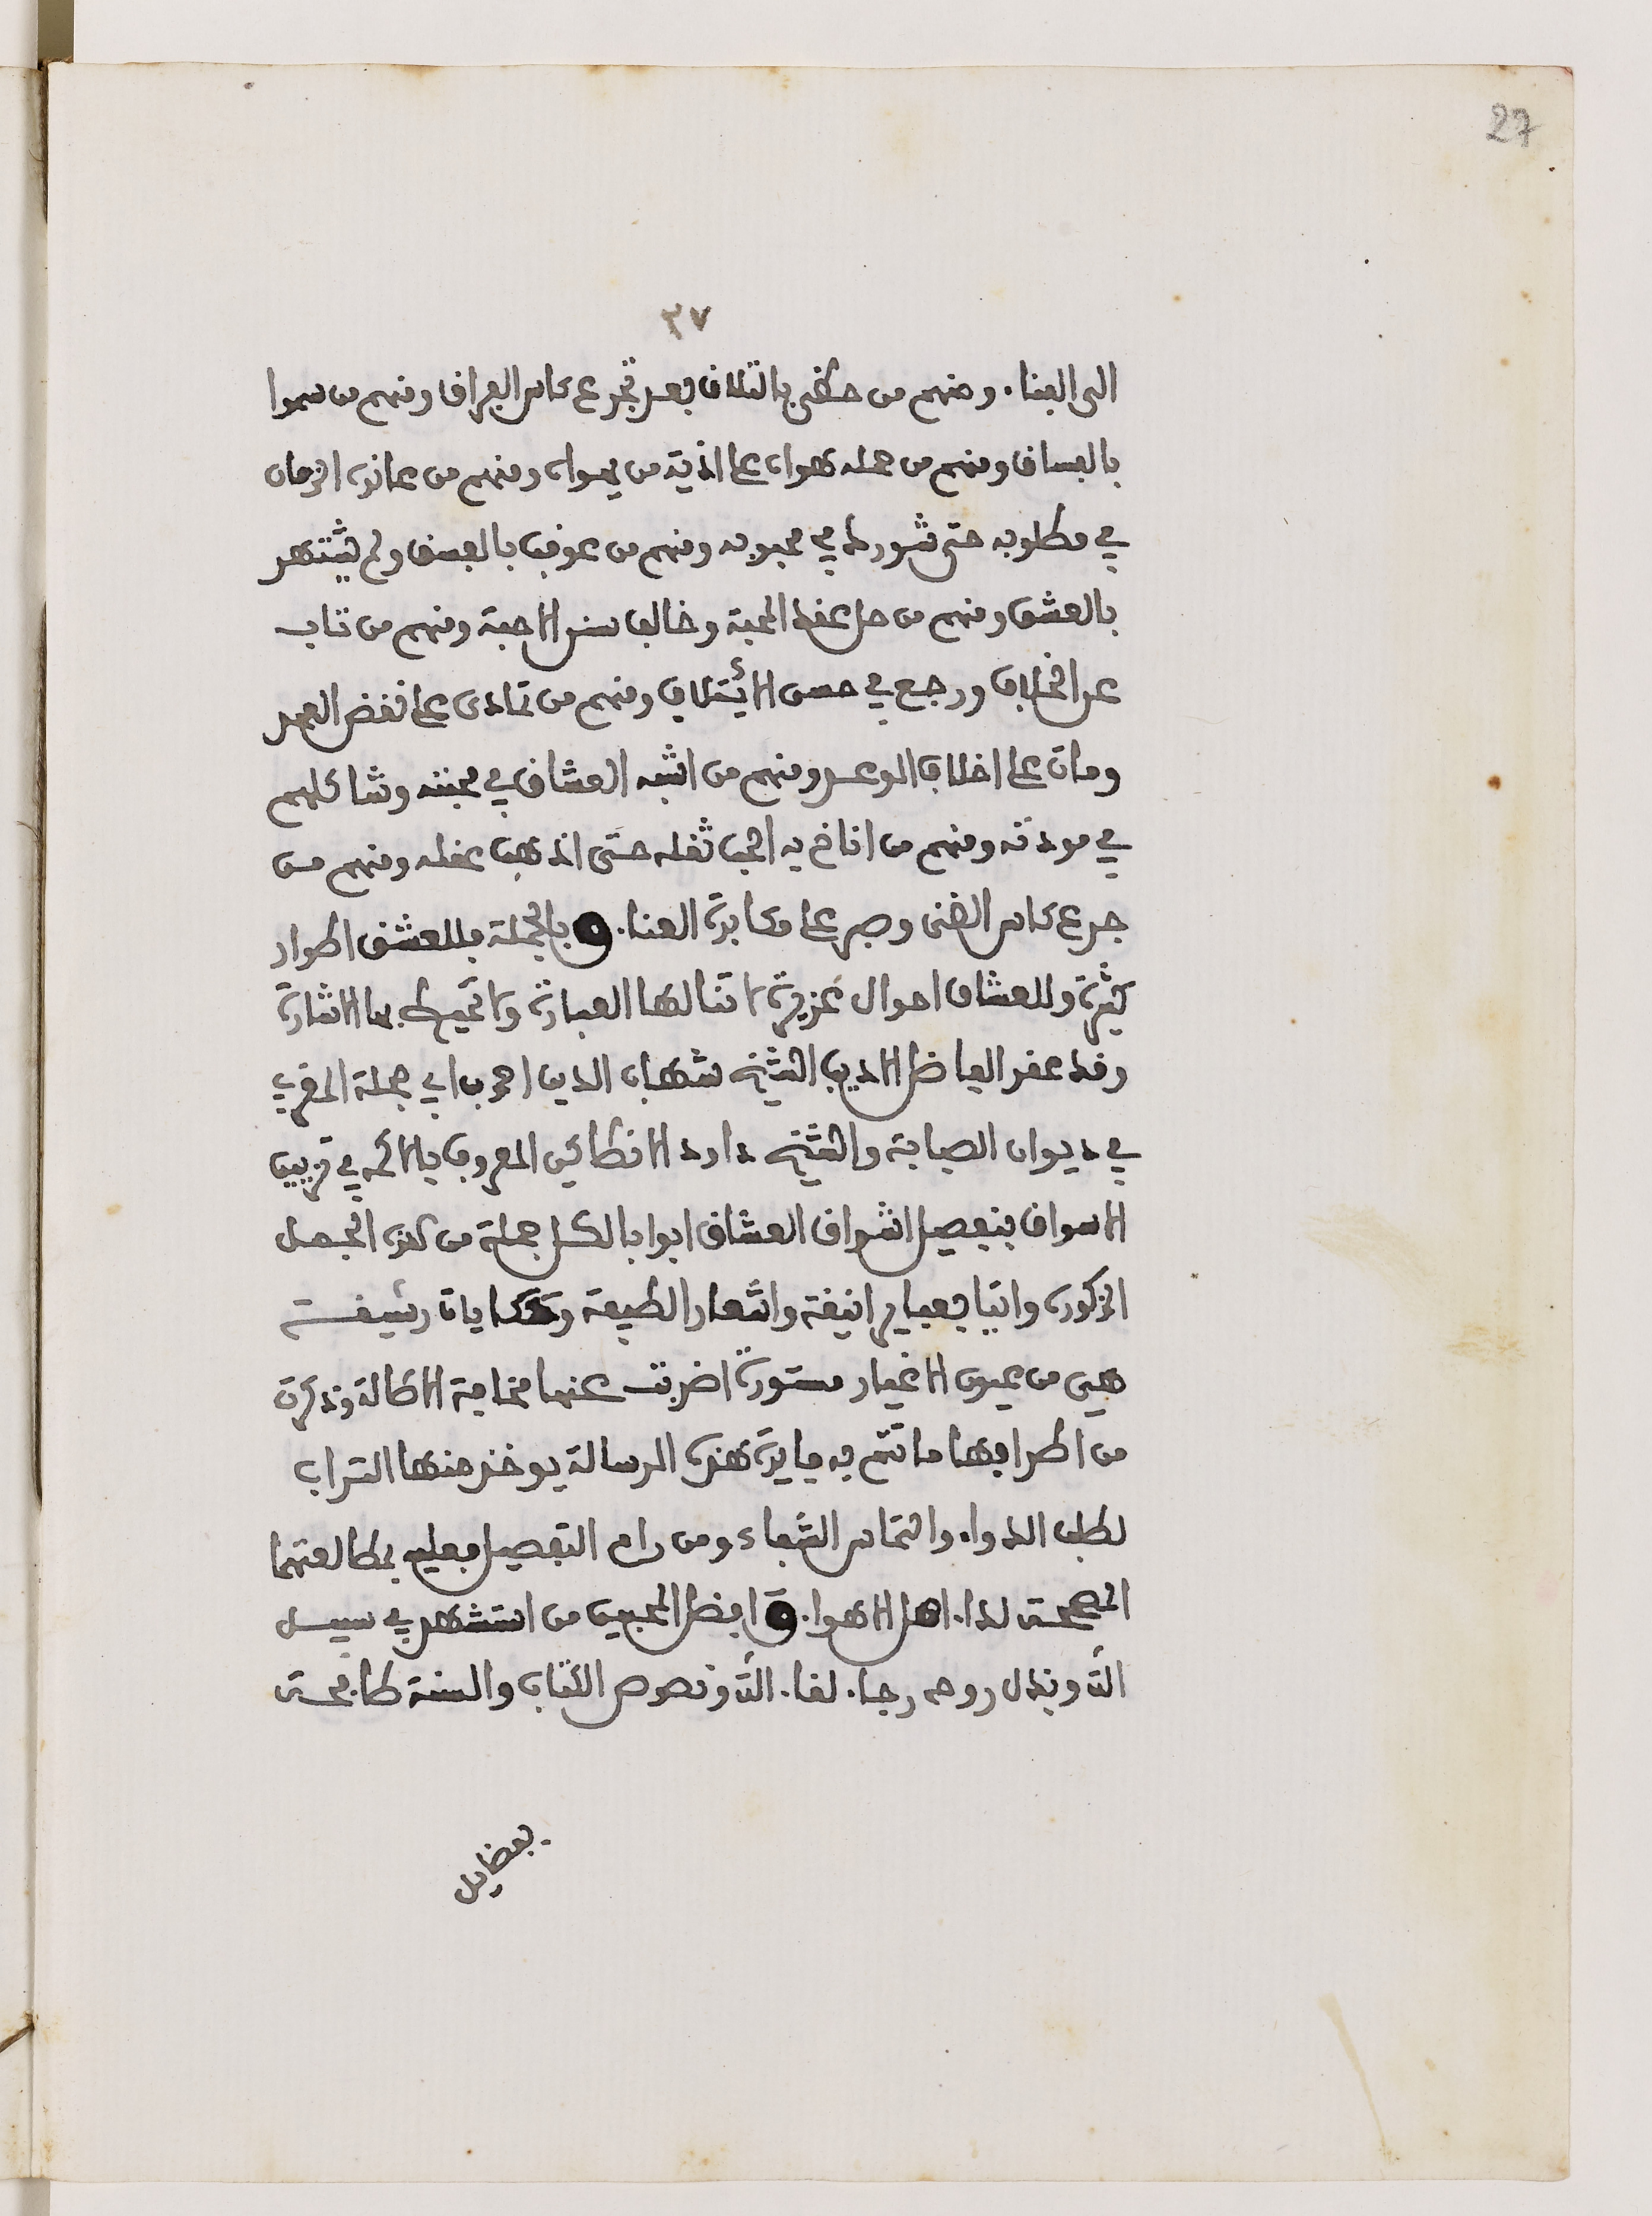 27
٢٧
الى الفنا. ومنهم من حظى بالتلاق بعد تجرع كاس الفراق ومنهم من سموا
بالفساق ومنهم من حمله هواه على اذية من يهواه ومنهم من عانده الزمان
في مطلوبه حتى شورك في محبوبه ومنهم من عوقب بالفسق ولم يشتهر
بالعشق ومنهم من حل عقد المحبة وخالف سنن الاحبة ومنهم من تاب
عن الخلاف ورجع في حسن الائتلاف ومنهم من تمادى على نقض العهد
ومات على اخلاف الوعد ومنهم من اشبه العشاق في محبته وشاكلهم
في مودته ومنهم من اناخ به الحب ثقله حتى اذهب عقله ومنهم من
جرع كاس الضنى وصبر على مكابدة العنا. وبالجملة فللعشق اطوار
كثيرة وللعشاق احوال غزيرة لا تنالها العبارة ولا تحيط بها الاشارة
وقد عقد الفاضل الاديب الشيخ شهاب الدين احمد بن ابي حجلة المغربي
في ديوان الصبابة والشيخ داود الانطاكي المعروف بالاكمه في تزيين
الاسواق بتفصيل اشواق العشاق ابوابا لكل جملة من هذه الجمل
المذكورة واتيا بعبارة انيقة واشعار لطيفة وحكايات رشيقة
هي من عيون الاغيار مستورة اضربت عنها مخافة الاطالة وذكرت
من اطرافها ما تتم به فايدة هذه الرسالة يوخذ منها التراب
لطلب الدواء والتماس الشفاء ومن رام التفصيل فعليه بمطالعتهما
لذا. اهل الاهوا. وافضل المحبين من استشهد في سبيل
الله وبذل روحه رجا. لقا. الله ونصوص الكتاب والسنة طافحة
بفضايل